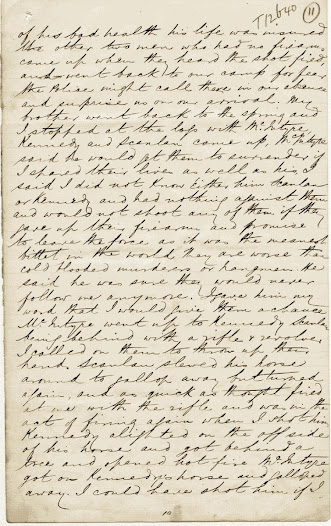 T12640 (11)
of his bad health his life was insured
the other two men who had no firearms
came up when they heard the shot fired
and went back to our camp for fear
the Police might call there in our absence
and surprise us on our arrival. My
brother went back to the spring and
I stopped at the logs with McIntyre
Kennedy and Scanlan came up, McIntyre
said he would get them to surrender if
I spared their lives as well as his, I
said I did not know Either him Scanlan
or Kennedy and had nothing against them
and would not shoot any of them if they
gave up their firearms and promise
to leave the force as it was the meanest
billet in the world they are worse than
cold blooded murderers or hangmen He
said he was sure they would never
follow me anymore. I gave him my
word that I would give them a chance
McIntyre went up to Kennedy Scanlan
being behind with a rifle & revolver
I called on them to throw up their
hands Scanlan slewed his horse
around to gallop away but turned
again and as quick as thought fired
at me with the rifle and was in the
act of firing again when I shot him
Kennedy alighted on the off side
of his horse and got behind a
tree and opened hot fire McIntyre
got on Kennedys horse and galloped
away. I could have shot him if I